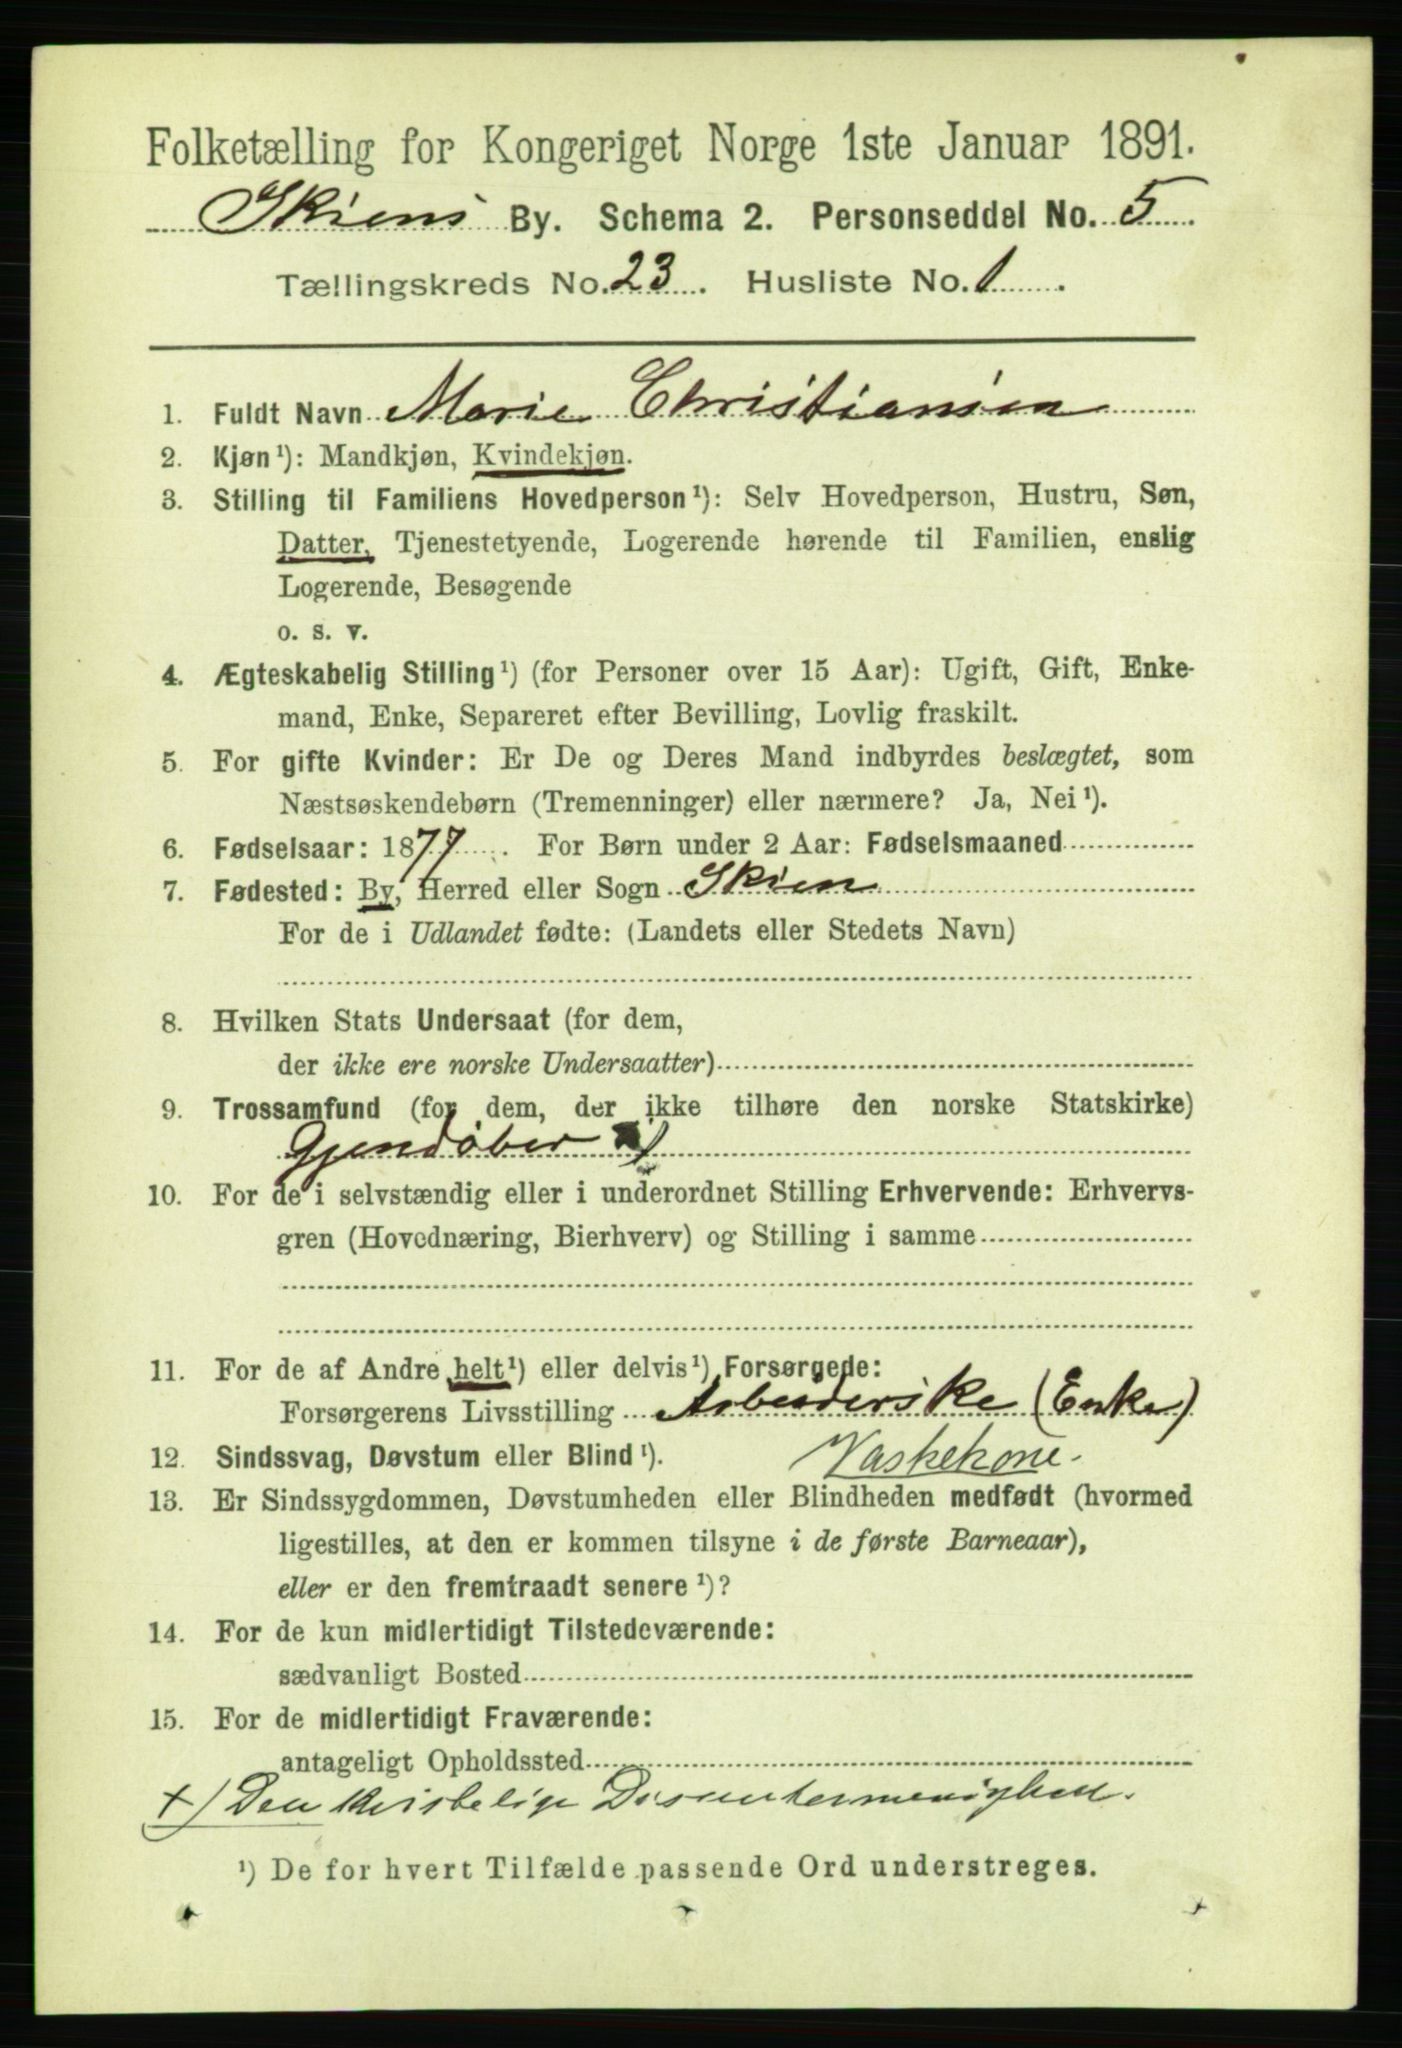 Folketælling for Kongeriget Norge 1ste Januar 1891.
Skiens By. Schema 2. Personseddel No. 5
Tællingskreds No. 23. Husliste No. 1.
1. Fuldt Navn Marie Christiansen
2. Kjøn ¹): Mandkjøn, Kvindekjøn.
3. Stilling til Familiens Hovedperson ¹): Selv Hovedperson, Hustru, Søn,
Datter, Tjenestetyende, Logerende hørende til Familien, enslig
Logerende, Besøgende
o. s. v.
4. Ægteskabelig Stilling ¹) (for Personer over 15 Aar): Ugift, Gift, Enke-
mand, Enke, Separeret efter Bevilling, Lovlig fraskilt.
5. For gifte Kvinder: Er De og Deres Mand indbyrdes beslægtet, som
Næstsøskendebørn (Tremenninger) eller nærmere? Ja, Nei ¹).
6. Fødselsaar: 1877. For Børn under 2 Aar: Fødselsmaaned
7. Fødested: By, Herred eller Sogn Skien
For de i Udlandet fødte: (Landets eller Stedets Navn)
8. Hvilken Stats Undersaat (for dem,
der ikke ere norske Undersaatter)
9. Trossamfund (for dem, der ikke tilhøre den norske Statskirke)
Gjendøber x)
10. For de i selvstændig eller i underordnet Stilling Erhvervende: Erhvervs-
gren (Hovednæring, Bierhverv) og Stilling i samme
11. For de af Andre helt ¹) eller delvis ¹) Forsørgede:
Forsørgerens Livsstilling Arbeiderske (Enke)
12. Sindssvag, Døvstum eller Blind ¹). Vaskekone.
13. Er Sindssygdommen, Døvstumheden eller Blindheden medfødt (hvormed
ligestilles, at den er kommen tilsyne i de første Barneaar),
eller er den fremtraadt senere ¹)?
14. For de kun midlertidigt Tilstedeværende:
sædvanligt Bosted
15. For de midlertidigt Fraværende:
antageligt Opholdssted
x) Den kristelige Disentermenighed.
¹) De for hvert Tilfælde passende Ord understreges.